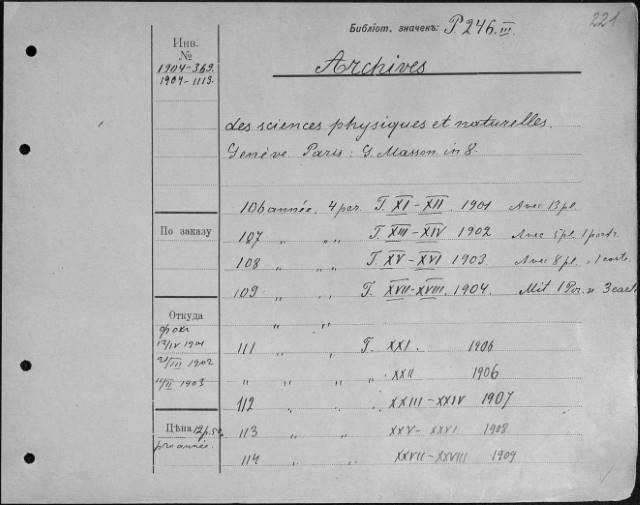 Библіот. значекъ: P 246.III.
221
Инв.
№
1904-369.
1904-1113.
Archives
des sciences physiques et naturelles.
Genève. Paris: G. Masson. in 8.
106 année. 4 per. T. XI-XII. 1901 Avec 13 pl.
По заказу
107 „ „ „ T. XIII-XIV 1902 Avec 5 pl. 1 portr.
108 „ „ „ T. XV-XVI 1903. Avec 8 pl. 1 carte.
109 „ „ „ T. XVII-XVIII. 1904. Mit 1 Por. u. 3 cart.
Откуда
„ „ „
12/IV 1901
111 „ „ T. XXI. 1906
21/III 1902
„ „ „ „ XXII 1906
11/II 1903
112 „ „ XXIII-XXIV 1907
Цѣна 12 р. 50
113 „ „ XXV-XXVI 1908
pr. année.
114 „ „ XXVII-XXVIII 1909